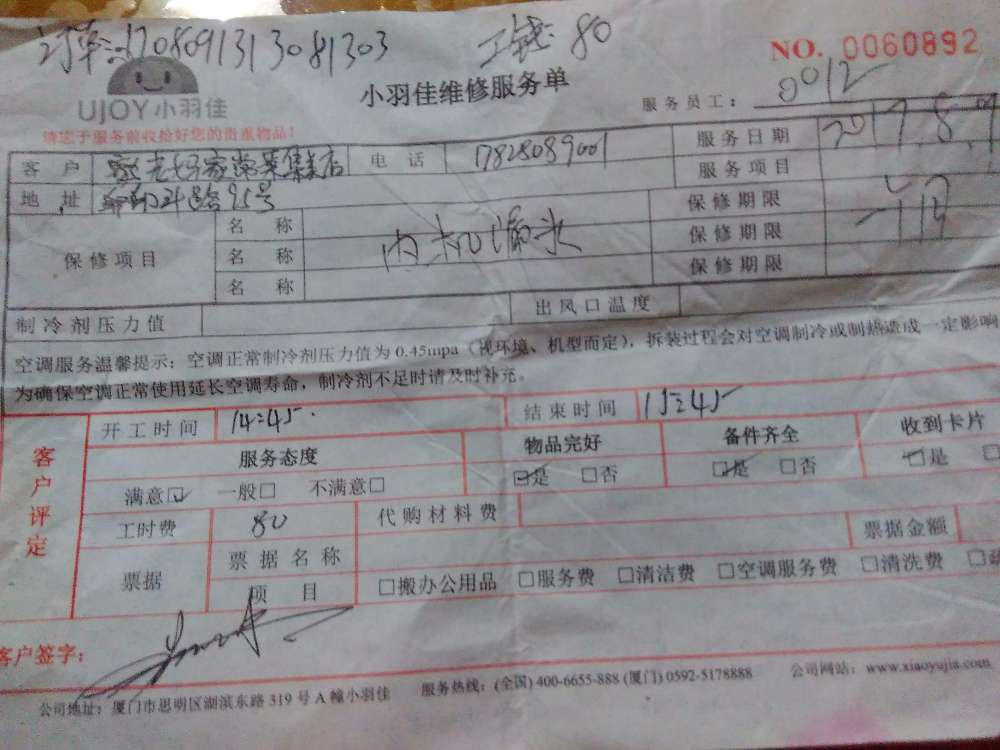 订单:170809131308​1303 工钱:80
NO. 0060892
UJOY小羽佳
小羽佳维修服务单
服务员工: 0012
请您于服务前收拾好您的贵重物品!
客 户 家常菜集美店 电 话 17828089001 服务日期 2017.8.9
服务项目
地 址 95号
保修项目 名 称 保修期限
名 称 内机漏水 保修期限 一个月
名 称 保修期限
制冷剂压力值 出风口温度
空调服务温馨提示:空调正常制冷剂压力值为0.45mpa(视环境、机型而定),拆装过程会对空调制冷或制热造成一定影响
为确保空调正常使用延长空调寿命,制冷剂不足时请及时补充。
客户评定
开工时间 14:45. 结束时间 15:45
服务态度 物品完好 备件齐全 收到卡片
满意☑ 一般□ 不满意□ ☑是 □否 ☑是 □否 ☑是 □
工时费 80 代购材料费 票据金额
票据 票据名称
项 目 □搬办公用品 □服务费 □清洁费 □空调服务费 □清洗费 □
客户签字:
公司地址:厦门市思明区湖滨东路319号A幢小羽佳 服务热线:(全国) 400-6655-888 (厦门) 0592-5178888 公司网站:www.xiaoyujia.com